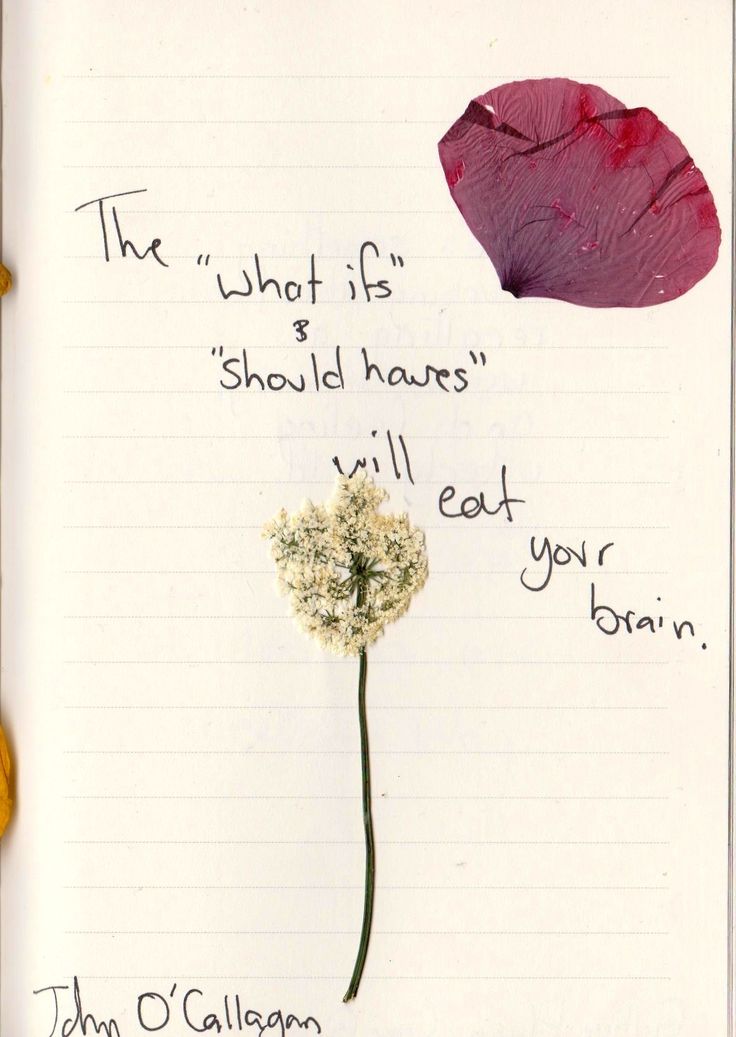 The
"what ifs"
&
"should haves"
will
eat
your
brain.
John O'Callagan